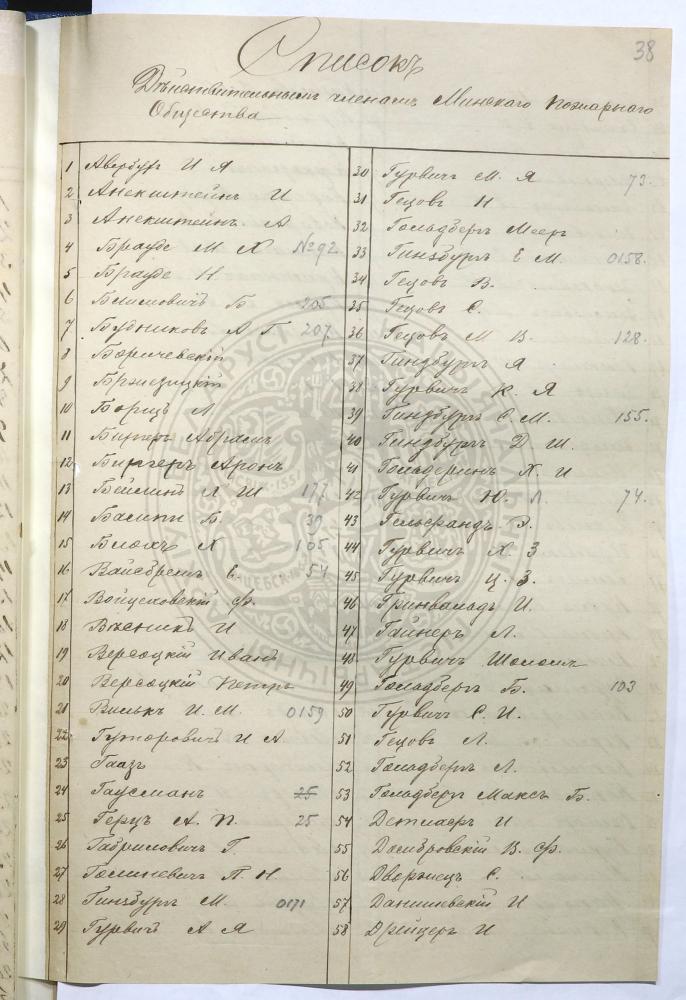 38
Списокъ
Дѣйствительнымъ членамъ Минскаго Пожарнаго
Общества
1 Авербухъ И Я
2 Анекштейнъ И
3 Анекштейнъ А
4 Брауде М Х №92
5 Брауде Н
6 Б 205
7 Будниковъ А Г 207
8 Боричевскій
9
10 Борицъ Л
11 Абрамъ
12 Аронъ
13 Бейлинъ Л Ш 177
14 Б. 39
15 Блохъ Х 105
16 Е. 54
17 Войцеховскій Ф.
18 Вѣсникъ И
19 Версоцкій Иванъ
20 Версоцкій Петръ
21 Вилькъ И. М. 0159
22 Гуторовичъ И А
23 Гаазъ
24 Гаусманъ 25
25 Герцъ А. П. 25
26 Габриловичъ Г.
27 Голиневичъ П. Н
28 Гинзбургъ М. 0171
29 Гурвичъ А Я
30 Гурвичъ М. Я 73.
31 Гецовъ Н
32 Гольдбергъ Мееръ
33 Гинзбургъ Е М. 0158.
34 Гецовъ В.
35 Гецовъ С.
36 Гецовъ М В. 128.
37 Гинзбургъ Я
38 Гурвичъ К. Я
39 Гинзбургъ С. М. 155.
40 Гинзбургъ Д Ш.
41 Х. И
42 Гурвичъ Ю. Л. 74.
43 Гельфандъ Э.
44 Гурвичъ Х З
45 Гурвичъ Ц. З.
46 Гринвальдъ И.
47 Гайнеръ Л.
48 Гурвичъ Шоломъ
49 Гольдбергъ Б. 103
50 Гурвичъ С. И.
51 Гецовъ Л.
52 Гольдбергъ Л.
53 Гольдбергъ Максъ Б.
54 И
55 Домбровскій В. Ф.
56 Дворжецъ С.
57 Данишевскій И
58 Дрейцеръ И